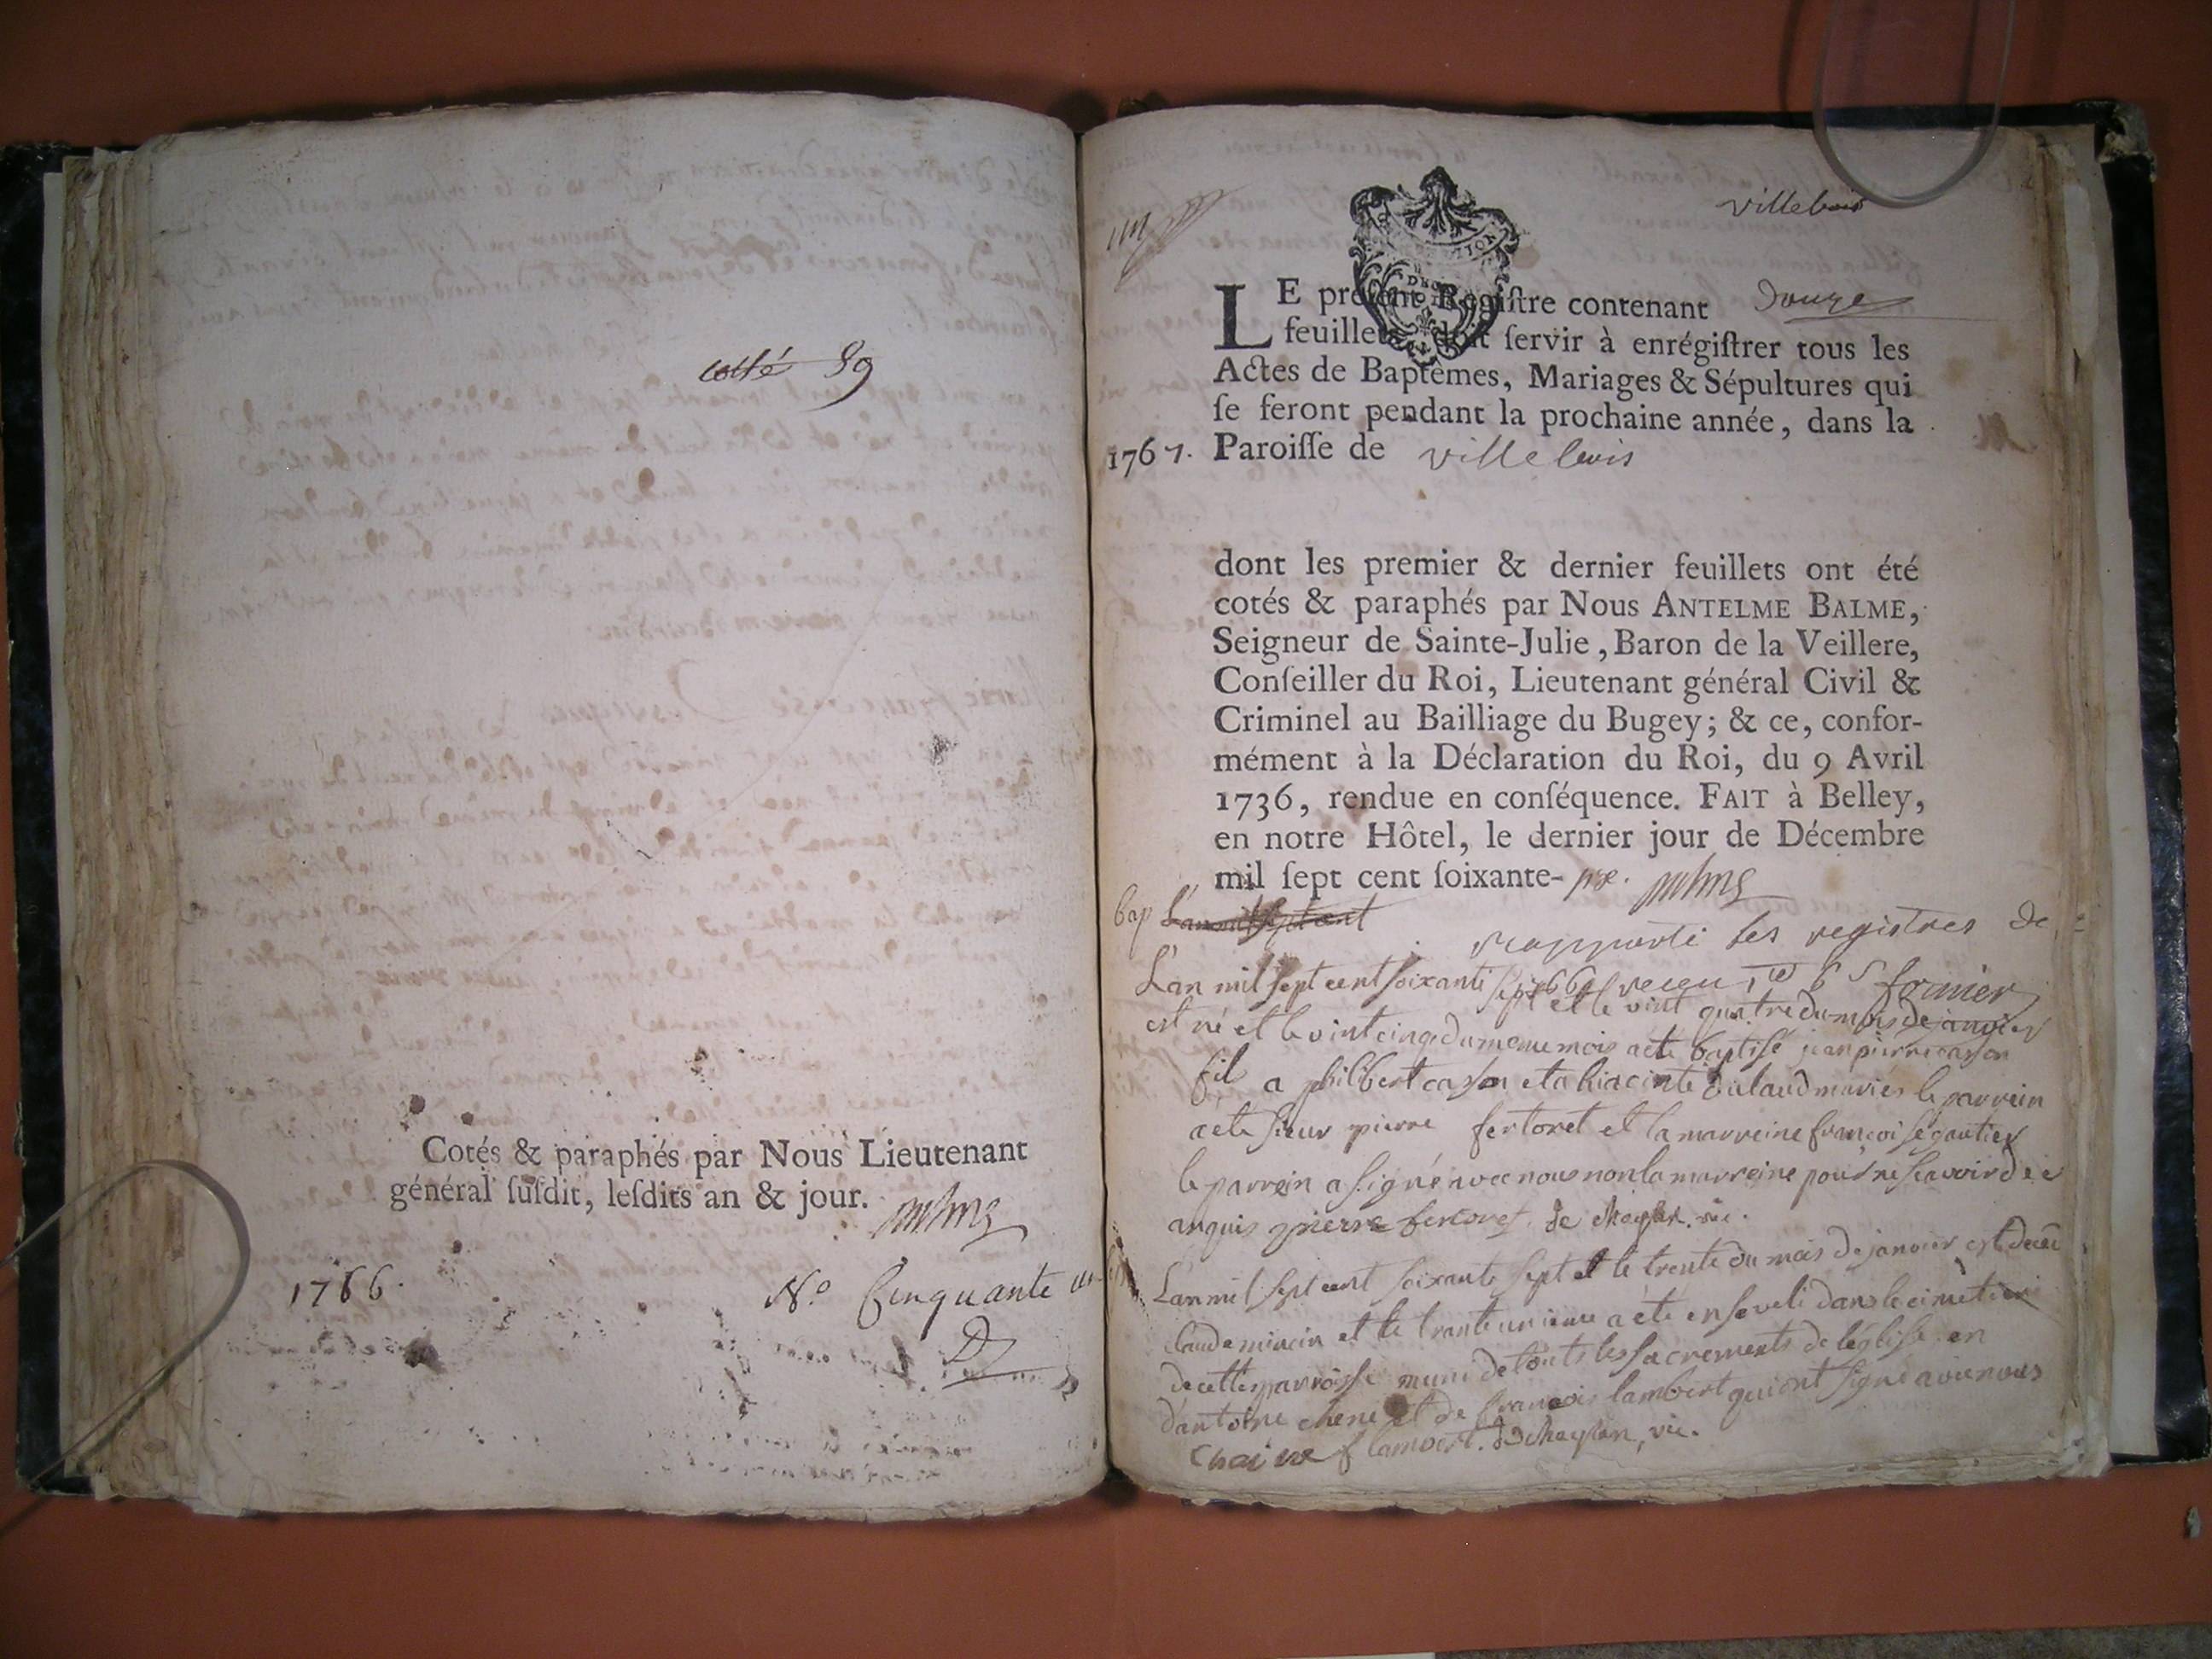 cotté 89
Cotés & paraphés par Nous Lieutenant
général ſuſdit, leſdits an & jour.
1766.
N.o Cinquante
villebois
LE préſent Regiſtre contenant Douze
feuillets, doit ſervir à enrégiſtrer tous les
Actes de Baptêmes, Mariages & Sépultures qui
ſe feront pendant la prochaine année, dans la
1767. Paroiſſe de villebois
dont les premier & dernier feuillets ont été
cotés & paraphés par Nous ANTELME BALME,
Seigneur de Sainte-Julie, Baron de la Veillere,
Conſeiller du Roi, Lieutenant général Civil &
Criminel au Bailliage du Bugey; & ce, confor-
mément à la Déclaration du Roi, du 9 Avril
1736, rendue en conſéquence. FAIT à Belley,
en notre Hôtel, le dernier jour de Décembre
mil ſept cent ſoixante-
bap L'an mil sept cent
rapporté les registres de
L'an mil sept cent soixante sept et le vint quatre du mois de janvier
est né et le vint cinq du meme mois a été baptisé jean pierre casson
fil a philibert casson et a hiacinte mariés le parrein
a ete sieur pierre fertoret et la marreine francoise gautier
le parrein a signé avec nous non la marreine pour ne scavoir de ce
anquis pierre fertoret. de Meyplan. vic.
L'an mil sept cent soixante sept et le trente du mois de janvier est decedé
claude mincin et le trante unieme a été enseveli dans le cimetiere
de cette parroisse muni de touts les sacrements de l'église en
d'antoine chene et de francois lambert qui ont signé avec nous
chaine f lambert. de Meyplan, vic.